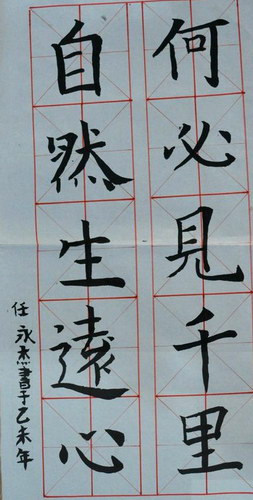 何必見千里
自然生遠心
任永杰書于乙未年